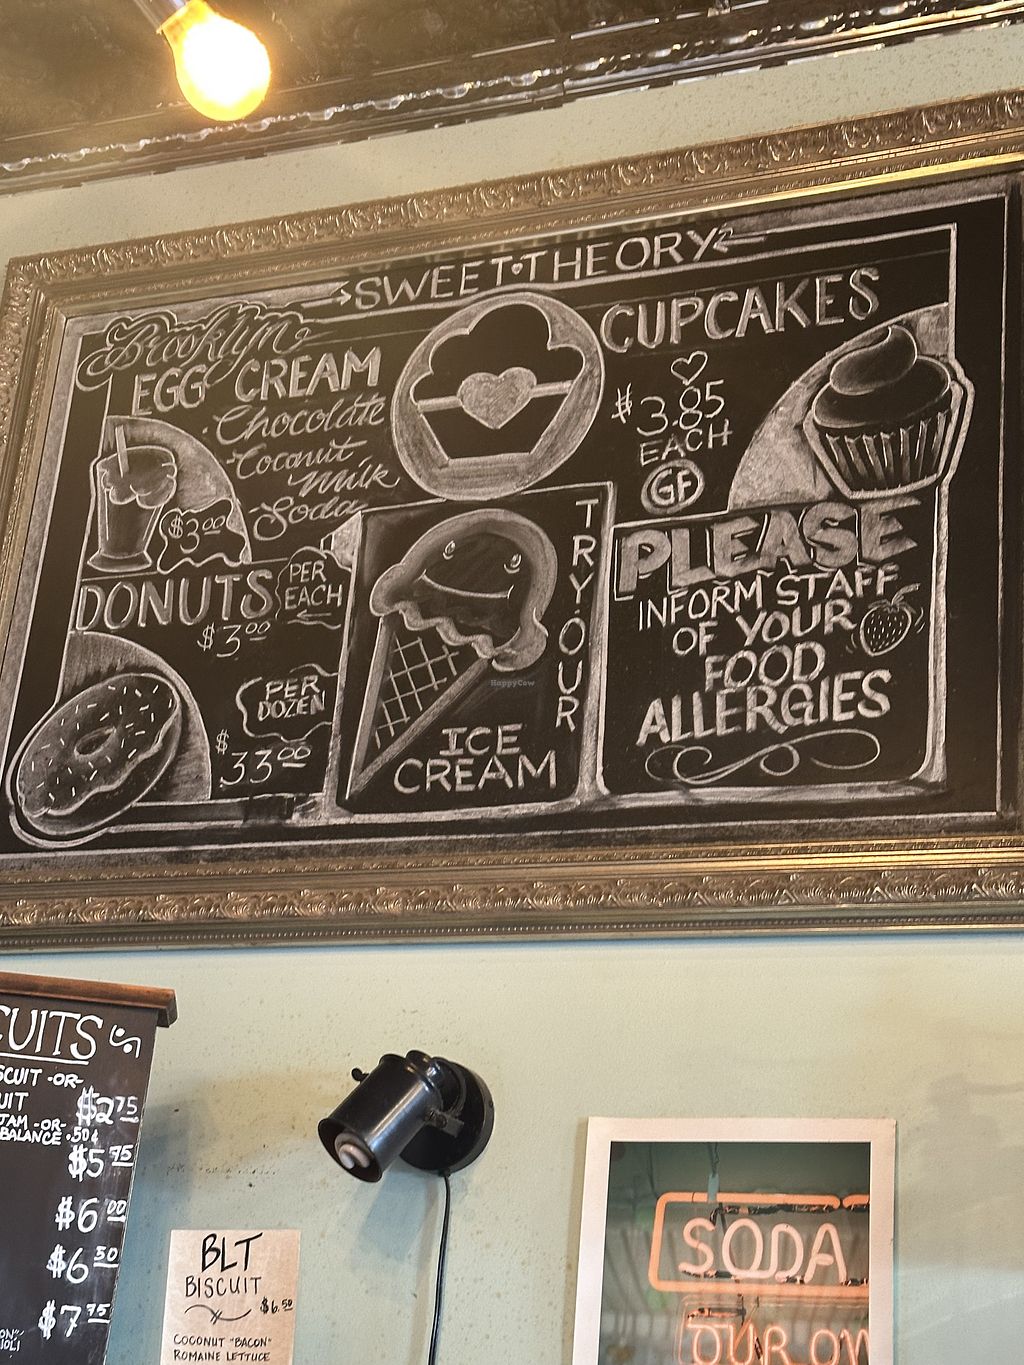 SWEET·THEORY
Brooklyn
EGG CREAM
Chocolate
Coconut
Milk
Soda
$3.00
CUPCAKES
$3.85
EACH
GF
DONUTS
PER
EACH
$3.00
PER
DOZEN
$33.00
TRY·OUR
ICE
CREAM
PLEASE
INFORM STAFF
OF YOUR
FOOD
ALLERGIES
HappyCow
CUITS
SCUIT -OR-
UIT $2.75
JAM -OR-
BALANCE .50¢
$5.95
$6.00
$6.50
$7.75
BLT
BISCUIT
$6.50
COCONUT "BACON"
ROMAINE LETTUCE
SODA
OUR OW